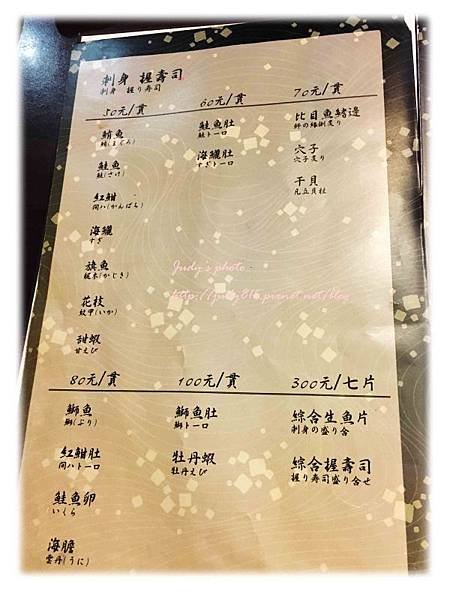 刺身 握壽司
刺身 握り寿司
50元/貫
鮪魚
鮪(まぐろ)
鮭魚
鮭(さけ)
紅魽
間八(がんぱち)
海鱺
すぎ
旗魚
梶木(かじき)
花枝
紋甲(いか)
甜蝦
甘えび
60元/貫
鮭魚肚
鮭トーロ
海鱺肚
すぎトーロ
70元/貫
比目魚鰭邊
鮃の縁側炙り
穴子
穴子炙り
干貝
凡立貝柱
80元/貫
鰤魚
鰤(ぶり)
紅魽肚
間ハトーロ
鮭魚卵
いくら
海膽
雲丹(うに)
100元/貫
鰤魚肚
鰤トーロ
牡丹蝦
牡丹えび
300元/七片
綜合生魚片
刺身の盛り合
綜合握壽司
握り寿司盛り合せ
Judy's photo
http://judy816.pixnet.net/blog